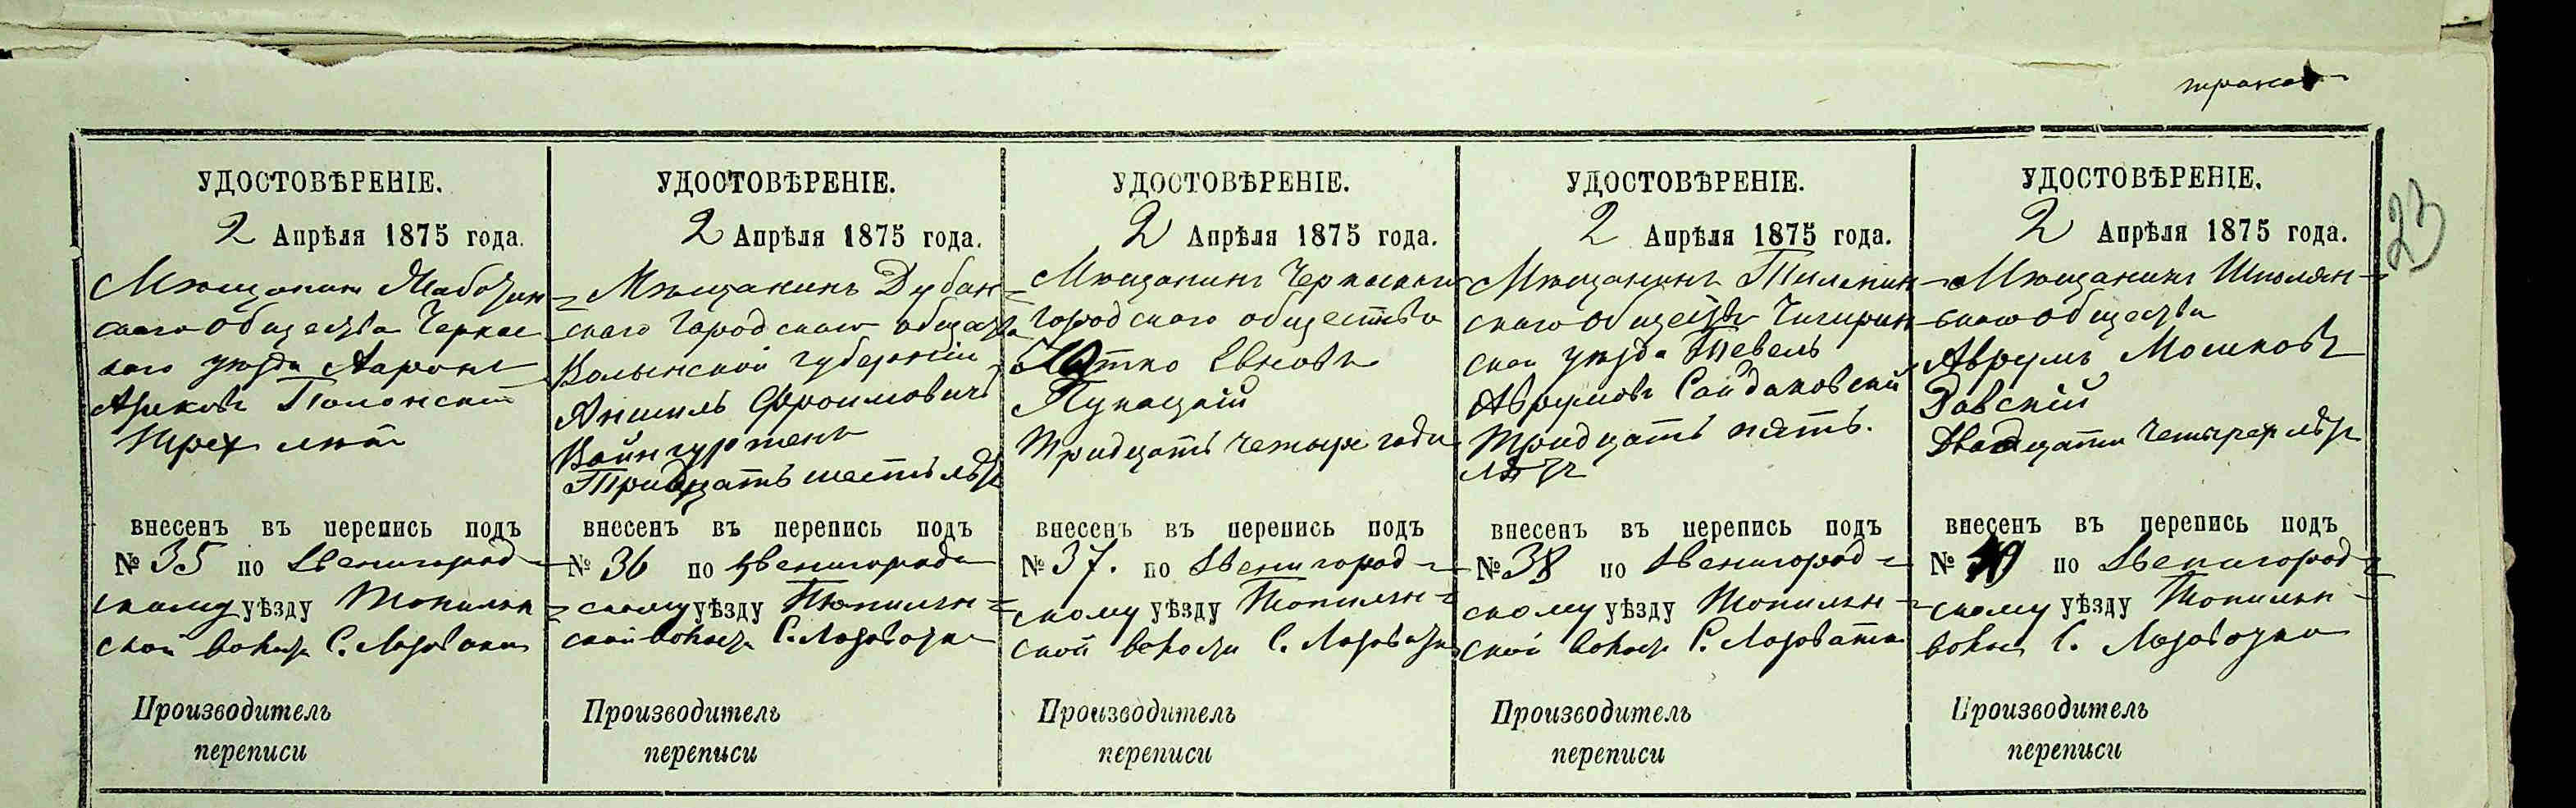 23
УДОСТОВѢРЕНІЕ.
2 Апрѣля 1875 года.
Мѣщанинъ
скаго общества Черкас
каго уѣзда Ааронъ
Полонскій
трех лѣтъ
внесенъ въ перепись подъ
№ 35 по Звенигород-
скому уѣзду Топильн
ской волости С. Лозоватки
Производитель
переписи
УДОСТОВѢРЕНІЕ.
2 Апрѣля 1875 года.
Мѣщанинъ Дубен-
скаго городскаго общества
Волынской губерніи
Аншель Фроимовичъ
Вайнгуртенъ
Тридцать шесть лѣтъ
внесенъ въ перепись подъ
№ 36 по Звенигород
скому уѣзду Топильн-
ской волости С. Лозоватка
Производитель
переписи
УДОСТОВѢРЕНІЕ.
2 Апрѣля 1875 года.
Мѣщанинъ Черкаскаго
городскаго общества
Евновъ
Тридцать четыре года
внесенъ въ перепись подъ
№ 37. по Звенигород-
скому уѣзду Топильн-
ской волости С. Лозоватка
Производитель
переписи
УДОСТОВѢРЕНІЕ.
2 Апрѣля 1875 года.
Мѣщанинъ
скаго общества Чигирин
ской уѣзда Тевель
Аврумовъ Сандаковскій
тридцать пять.
лѣтъ
внесенъ въ перепись подъ
№ 38 по Звенигород-
скому уѣзду Топильн-
ской волости С. Лозоватка
Производитель
переписи
УДОСТОВѢРЕНІЕ.
2 Апрѣля 1875 года.
Мѣщанинъ Шполян-
скаго общества
Аврумъ Мошковъ
Довскій
Двадцати четырех лѣтъ
внесенъ въ перепись подъ
№ по Звенигород-
скому уѣзду Топильн-
волости С. Лозоватка
Производитель
переписи